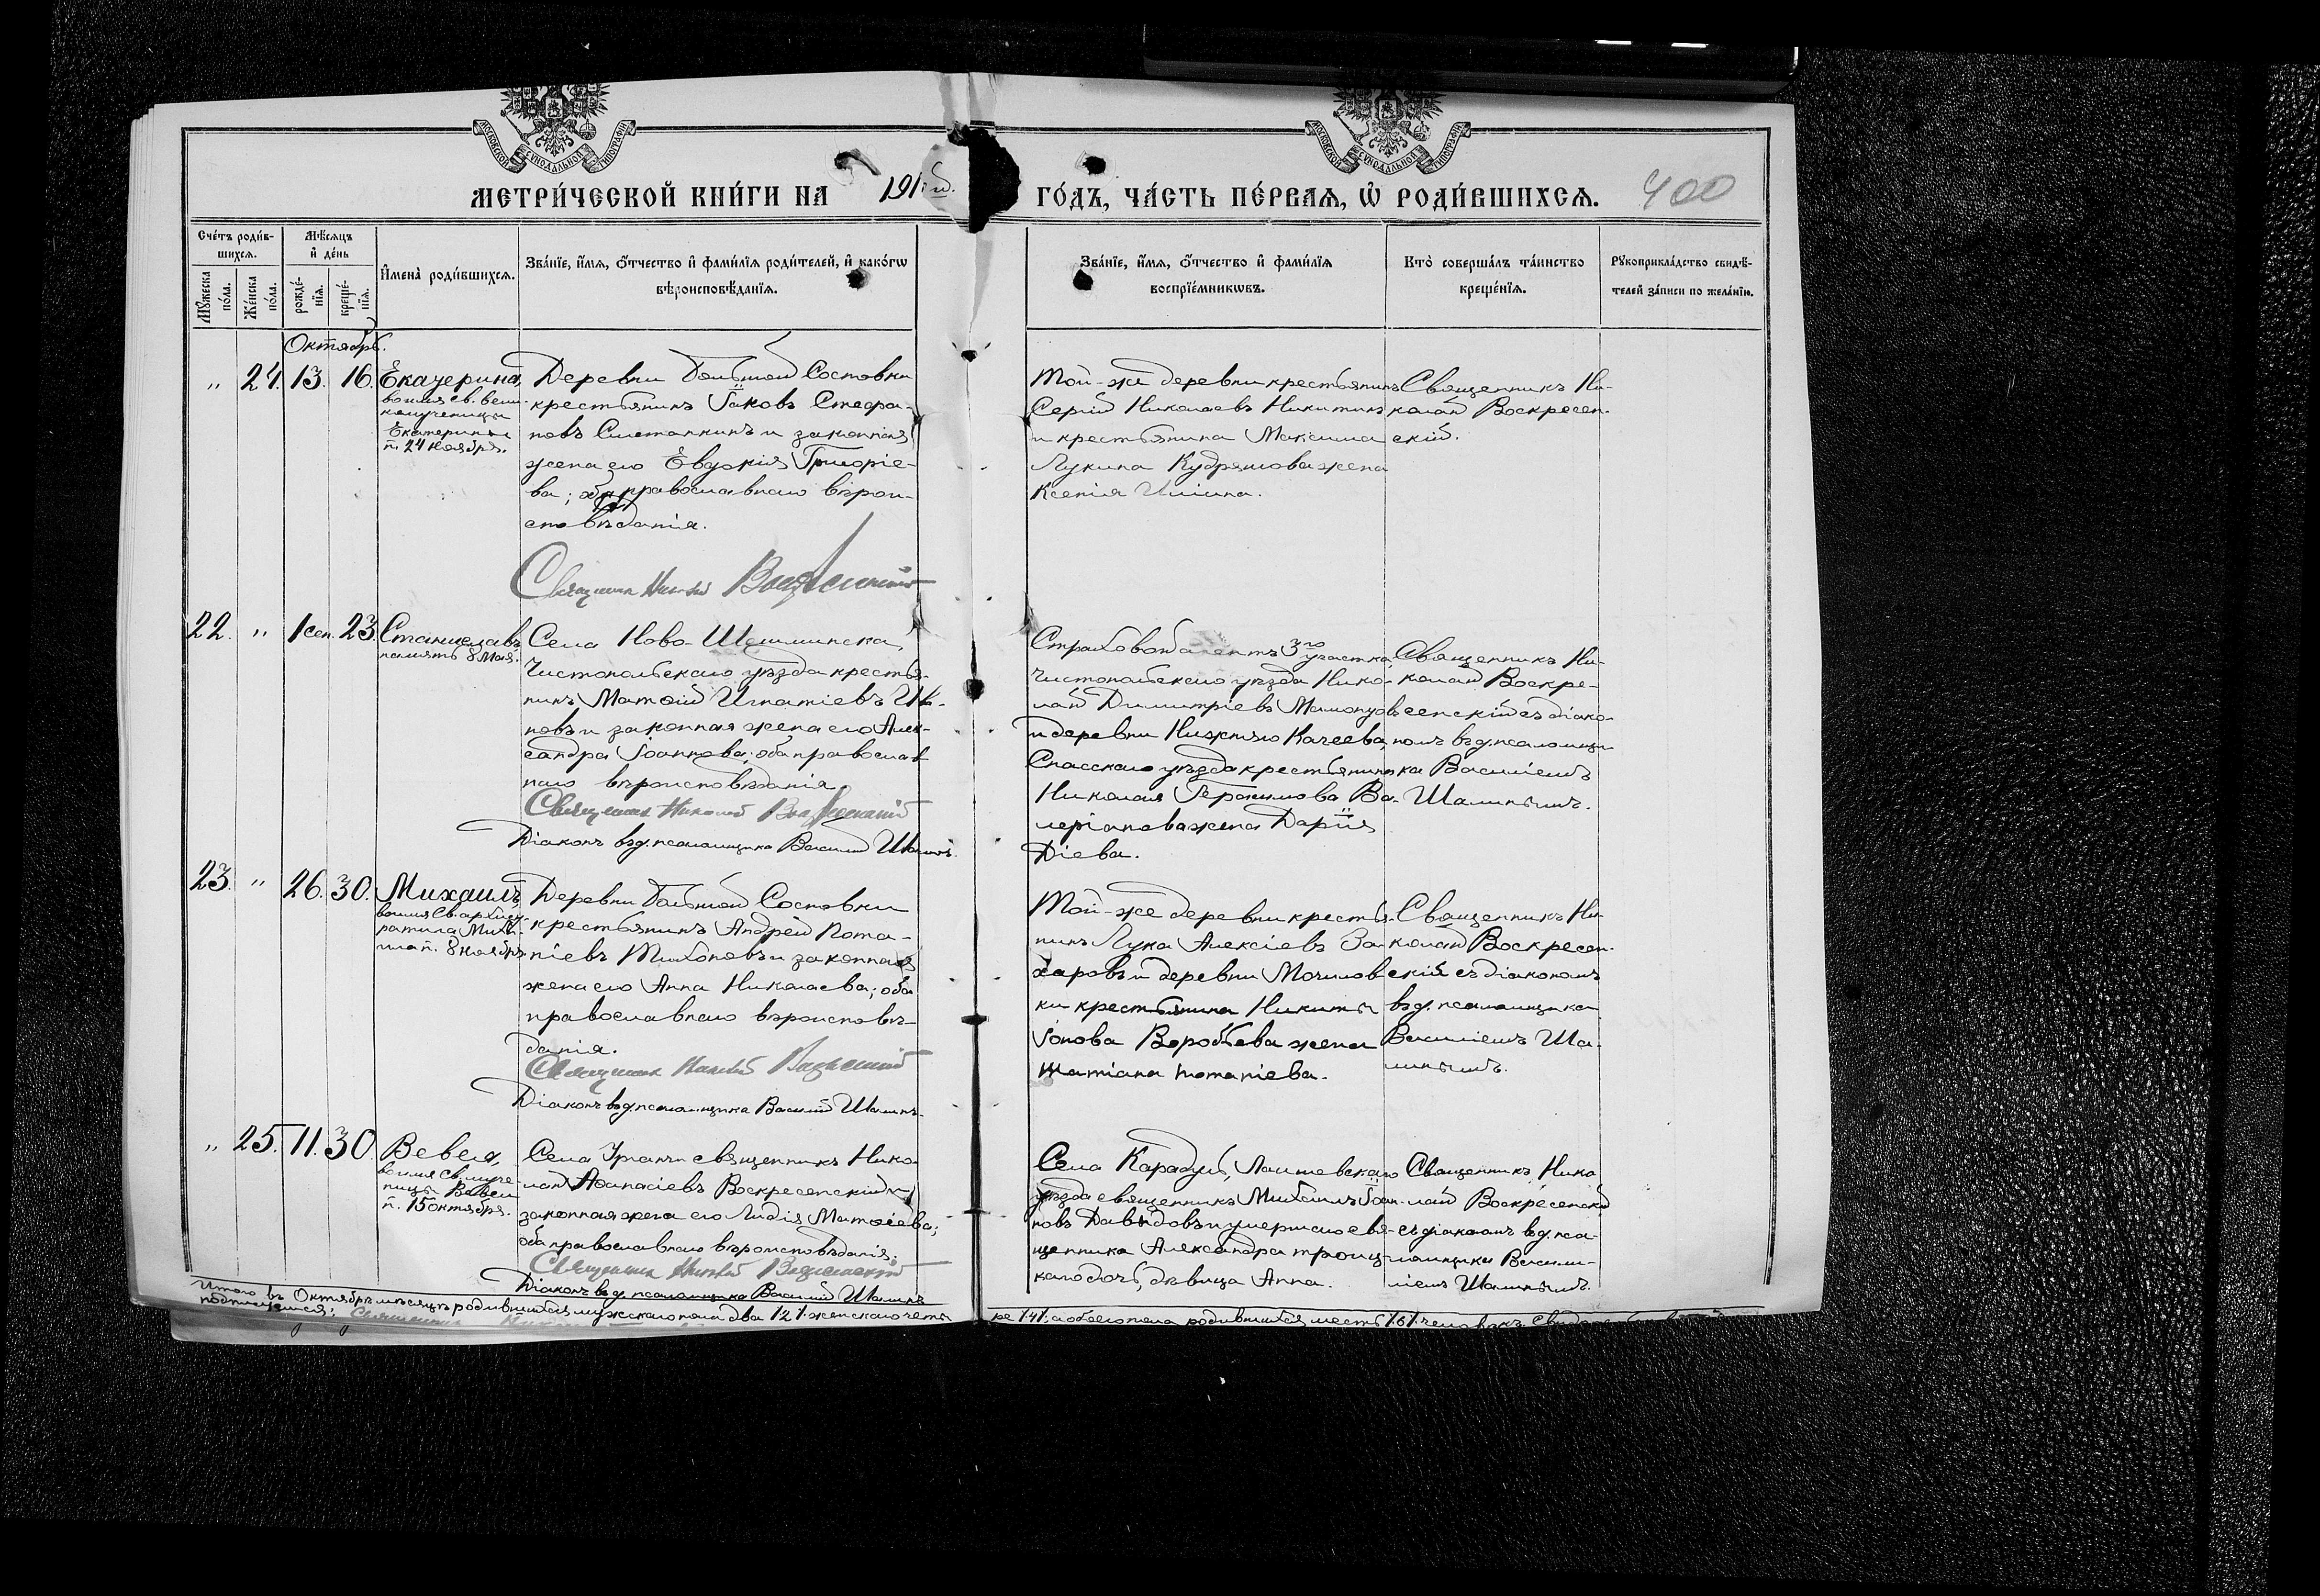 МОСКОВСКОЙ СУНОДАЛЬНОЙ ТИПОГРАФІИ
МОСКОВСКОЙ СУНОДАЛЬНОЙ ТИПОГРАФІИ
МЕТРИ́ЧЕСКОЙ КНИ́ГИ НА
ГО́ДЪ, ЧА́СТЬ ПЕ́РВАѦ, Ѡ҆ РОДИ́ВШИХСѦ.
400
Сче́тъ роди́в-
шихсѧ.
Мѣ́сѧцъ
и҆ де́нь
Мꙋ́жеска
по́ла.
Же́нска
по́ла.
рожде́-
нїѧ.
креще́-
нїѧ.
И҆мена̀ роди́вшихсѧ.
Зва́нїе, и҆́мѧ, ѻ҆́тчество и҆ фами́лїѧ роди́телей, и҆ како́гѡ
вѣроисповѣ́данїѧ.
Зва́нїе, и҆́мѧ, ѻ҆́тчество и҆ фами́лїѧ
воспрїе́мникѡвъ.
Кто̀ соверша́лъ та́инство
креще́нїѧ.
Рꙋкоприкла́дство свидѣ́-
телей за́писи по жела́нїю.
Октябрь.
„ 24. 13. 16.
Екатерина,
во имя св. вели-
комученицы
Екатерины
п. 24 ноября.
Деревни Большой Сосновки
крестьянинъ Іаковъ Стефа-
новъ Сметанкинъ и законная
жена его Евдокія Григоріе-
ва; оба православнаго вѣрои-
сповѣданія.
Священникъ Николай Воскресенскій
Той-же деревни крестьянинъ
Сергій Николаевъ Никитинъ
и крестьянина Максима
Лукина Кудряшова жена
Ксенія Иліина.
Священникъ Ни-
колай Воскресен-
скій.
22. „ 1 сен. 23.
Станиславъ
память 8 Мая.
Села Ново-Шешминска,
Чистопольскаго уѣзда крестья-
нинъ Матѳій Игнатіевъ
новъ и законная жена его Алек-
сандра Іоаннова; оба православ
наго вѣроисповѣданія.
Священникъ Николай Воскресенскій
Діаконъ в д. псаломщика Василій Шалинъ.
Страховой агентъ 3го участка,
Чистопольскаго уѣзда Нико-
лай Димитріевъ
и деревни Нижняго Качеева,
Спасскаго уѣзда крестьянина
Николая Герасимова Ва-
леріанова жена Дарія
Діева.
Священникъ Ни-
колай Воскре-
сенскій съ діако-
номъ в д. псаломщи-
ка Василіемъ
Шалинымъ.
23. „ 26. 30.
Михаилъ,
во имя Св. архис-
ратига Миха-
ила п. 8 ноября
Деревни Большой Сосновки
крестьянинъ Андрей Пота-
піевъ Тихоновъ и законная
жена его Анна Николаева; оба
православнаго вѣроисповѣ-
данія.
Священникъ Николай Воскресенскій
Діаконъ в д. псаломщика Василій Шалинъ.
Той-же деревни крестья-
нинъ Лука Алексіевъ За-
харовъ и деревни Мочилов
ки крестьянина Никиты
Іонова Воробьева жена
Татіана Потапіева.
Священникъ Ни-
колай Воскресен-
скій съ діакономъ
в д. псаломщика
Василіемъ Ша-
линымъ.
„ 25. 11. 30.
Вевея,
во имя Св. муче-
ницы Вевеи
п. 15 октября.
Села священникъ Нико-
лай Аѳанасіевъ Воскресенскій и
законная жена его Лидія Матѳіева;
оба православнаго вѣроисповѣданія;
Священникъ Николай Воскресенскій
Діаконъ в д. псаломщика Василій Шалинъ
Села Карадуй, Лаишевскаго
уѣзда священникъ Михаилъ Іоан-
новъ Давыдовъ и умершаго свя-
щенника Александра Троиц-
каго дочь, дѣвица Анна.
Священникъ Нико
лай Воскресенскій
съ діакономъ в д. пса-
ломщика Васи-
ліемъ Шалинымъ.
Итого въ Октябрѣ мѣсяцѣ родившихся мужскаго пола два /2/ женскаго четы
ре /4/; а обоего пола родившихся шесть /6/ человѣкъ
подписуемся: Священникъ